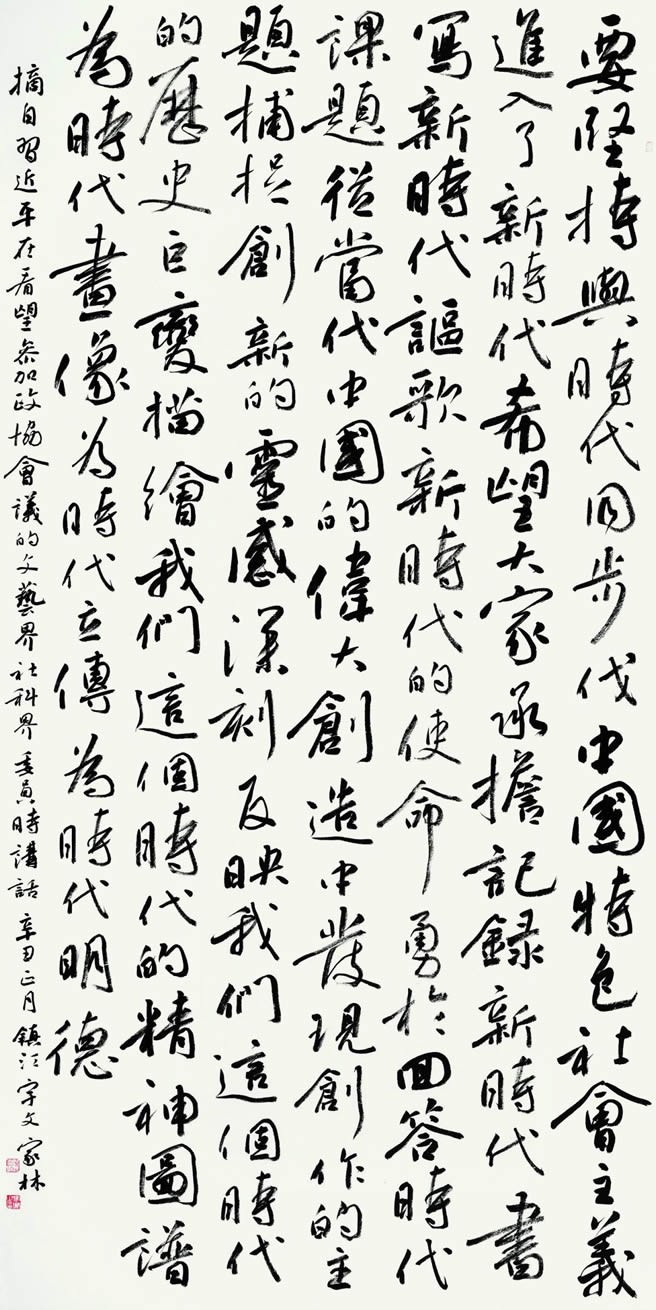 要堅持與時代同步伐中國特色社會主義
進入了新時代希望大家承擔記錄新時代書
寫新時代謳歌新時代的使命勇於回答時代
課題從當代中國的偉大創造中發現創作的主
題捕捉創新的靈感深刻反映我們這個時代
的歷史巨變描繪我們這個時代的精神圖譜
為時代畫像為時代立傳為時代明德
摘自習近平在看望參加政協會議的文藝界社科界委員時講話辛丑正月鎮江宇文家林